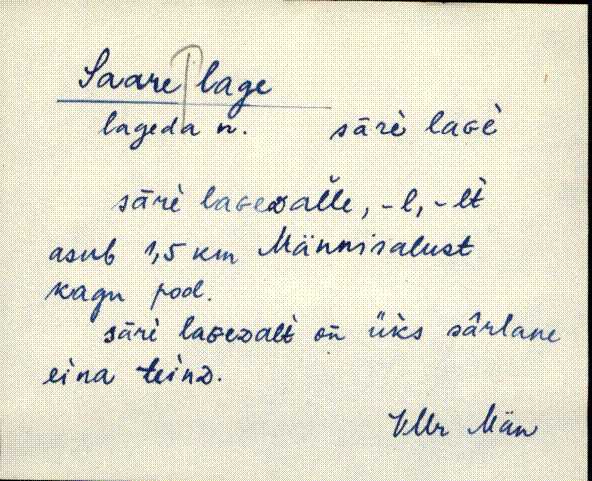 Saare lage
lageda n. sārè laGè
sārè laGeᴅalle, -l, -lt
asub 1,5 km Männisalust
kagu pool.
sārè laGeᴅalt on üks sârlane
eina teinᴅ.
VMr Män